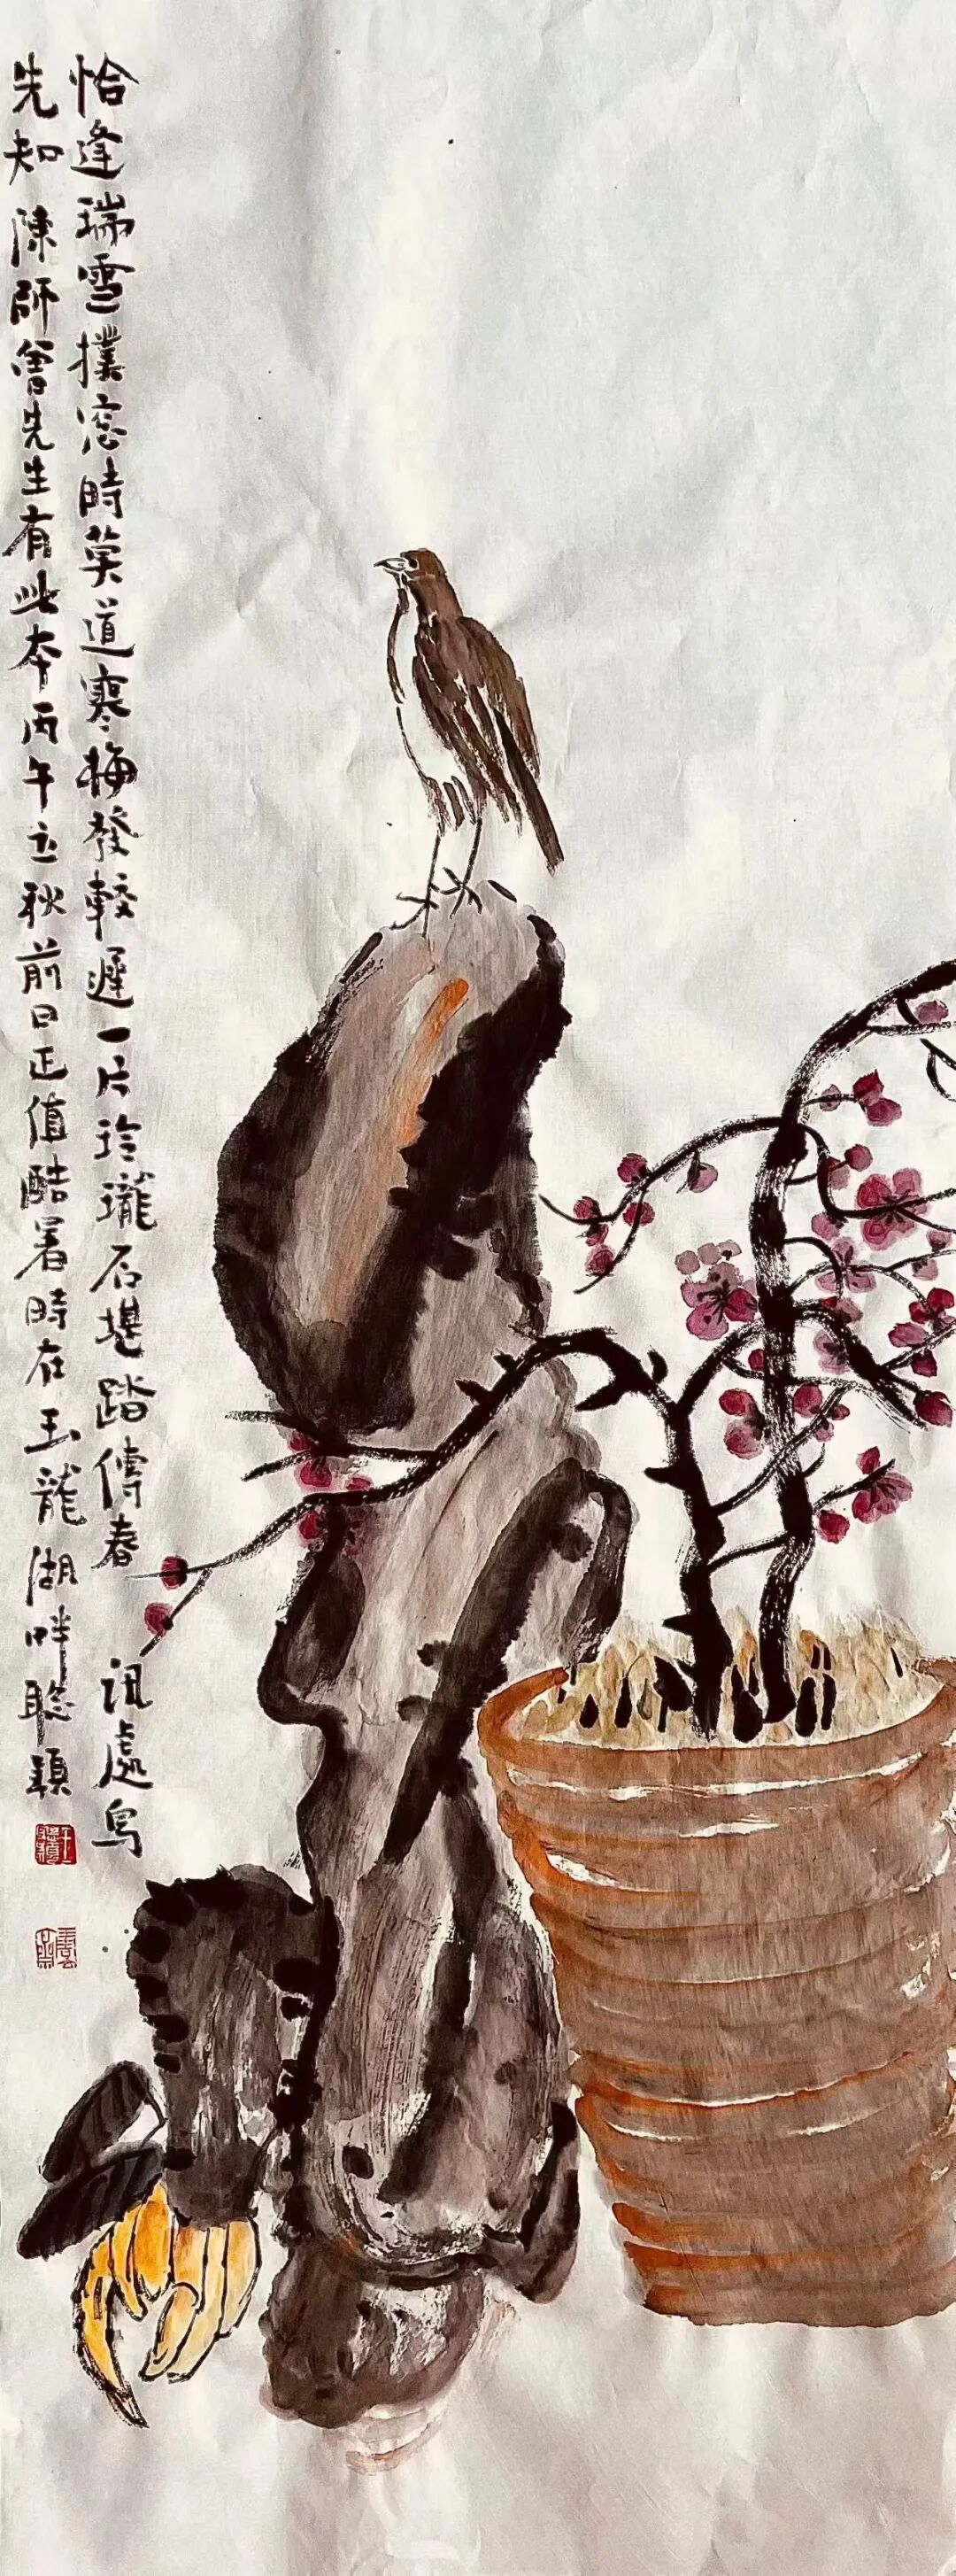 恰逢瑞雪撲窓時莫道寒梅發較遲一片玲瓏石堪踏傳春訊處鳥
先知 陳師曾先生有此本丙午立秋前日正值酷暑時在玉龍湖畔聡穎